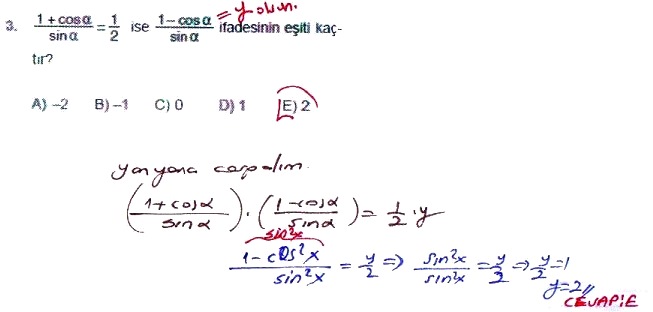 3. (1 + cos α)/(sin α) = 1/2 ise (1 − cos α)/(sin α) = y olsun. ifadesinin eşiti kaç-
tır?
A) −2 B) −1 C) 0 D) 1 E) 2
yan yana çarpalım.
((1 + cos α)/(sin α)) · ((1 − cos α)/(sin α)) = 1/2 · y
sin²x
(1 − cos²x)/(sin²x) = y/2 ⇒ (sin²x)/(sin²x) = y/2 ⇒ y/2 = 1
y = 2//
CEVAP: E